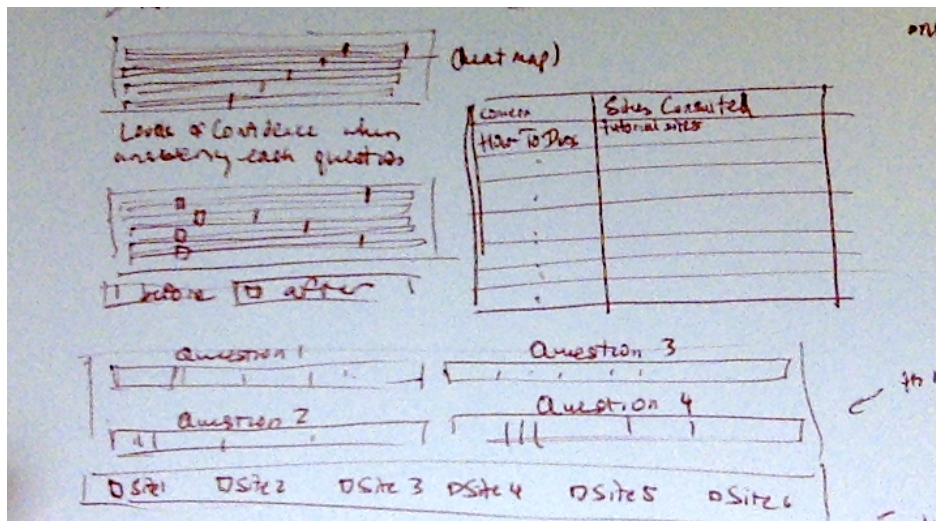 (heat map)
Levels of Confidence when
answering each question
Sites Consulted
How-To Docs
tutorial sites
before after
Question 1
Question 3
Question 2
Question 4
Site 1 Site 2 Site 3 Site 4 Site 5 Site 6